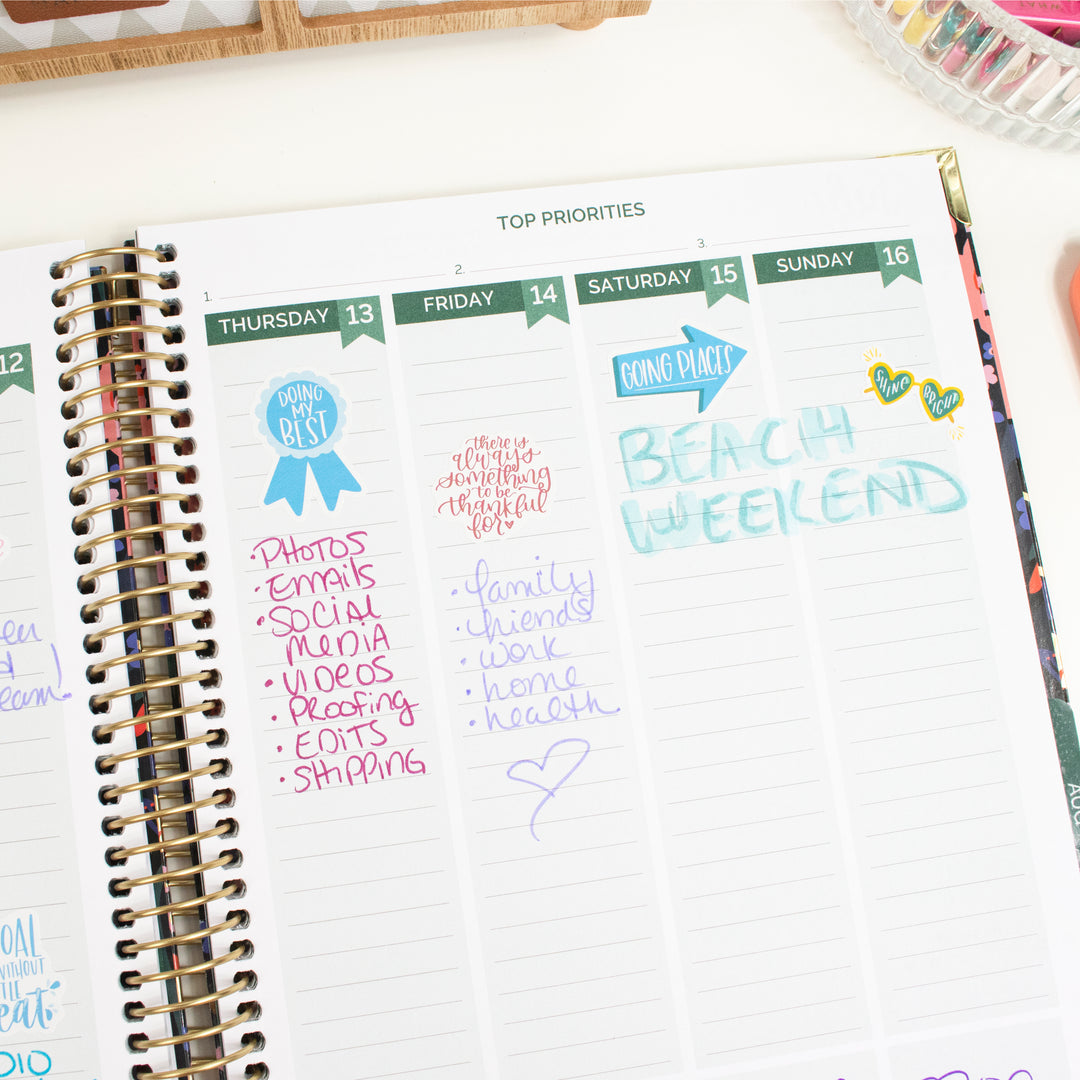 TOP PRIORITIES
1.
2.
3.
12
THURSDAY 13
FRIDAY 14
SATURDAY 15
SUNDAY 16
DOING
MY
BEST
• PHOTOS
• EMAILS
• SOCIAL
MEDIA
• VIDEOS
• PROOFING
• EDITS
• SHIPPING
there is
always
something
to be
thankful
for
• family
• friends
• work
• home
• health
GOING PLACES
SHINE
BRIGHT
BEACH
WEEKEND
WITHOUT